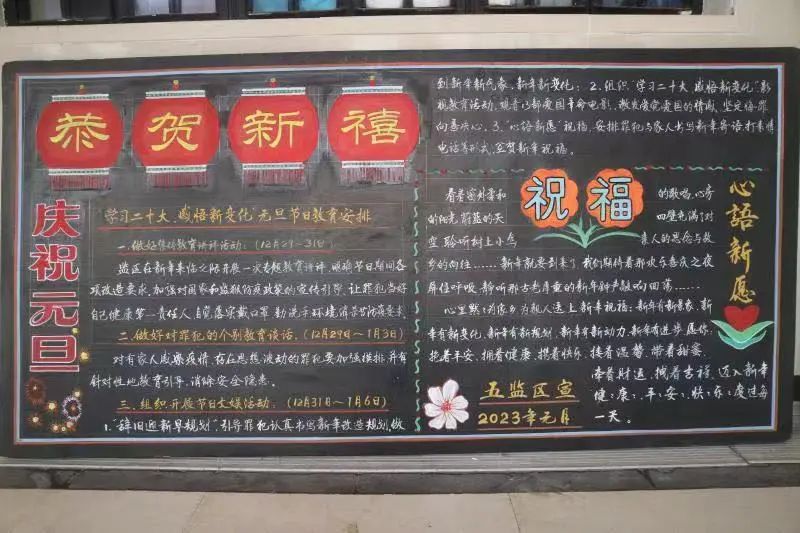 恭贺新禧
庆祝元旦
"学习二十大、感悟新变化"元旦节日教育安排
一、做好集体教育讲评活动：（12月29-31日）
监区在新年来临之际开展一次专题教育讲评，明确节日期间各
项改造要求，加强对国家和监狱防疫政策的宣传引导，让罪犯当好
自己健康第一责任人，自觉落实戴口罩、勤洗手环境消杀等防疫要求
二、做好对罪犯的个别教育谈话。（12月29日～1月3日）
对有家人感染疫情，存在思想波动的罪犯要加强摸排，并有
针对性地教育引导，消除安全隐患。
三、组织开展节日文娱活动：（12月31日～1月6日）
1、"辞旧迎新早规划"，引导罪犯认真书写新年改造规划，做
到新年新气象，新年新变化；2、组织"学习二十大 感悟新变化"影
视教育活动，观看1部爱国革命电影，激发爱党爱国的情感，坚定悔罪
向善决心。3、"心语新愿"祝福，安排罪犯与家人书写新年寄语、打亲情
电话等形式，互贺新年祝福。
祝福
心語新愿
看着窗外柔和
的阳光，蔚蓝的天
空，聆听树上小鸟
的歌鸣，心房
四壁充满了对
亲人的思念与故
乡的向往……新年就要到来了，我们期待着那欢乐喜庆之夜
屏住呼吸，聆听那古老厚重的新年钟声敲响回荡……
心里默默为家乡为亲人送上新年祝福：新年有新景象，新
年有新变化，新年有新规划，新年有新动力，新年有进步，愿你
抱着平安，拥着健康，携着快乐，搂着温馨，带着甜蜜，
牵着财运，拽着吉祥，迈入新年
健：康：、平：安：、快：乐：度过每
一天。
五监区宣
2023年元月